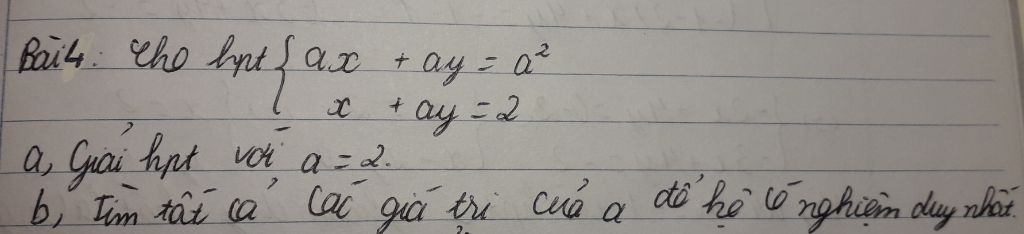 Bài 4: Cho hpt { ax + ay = a²
x + ay = 2
a, Giải hpt với a = 2.
b, Tìm tất cả các giá trị của a để hệ có nghiệm duy nhất.